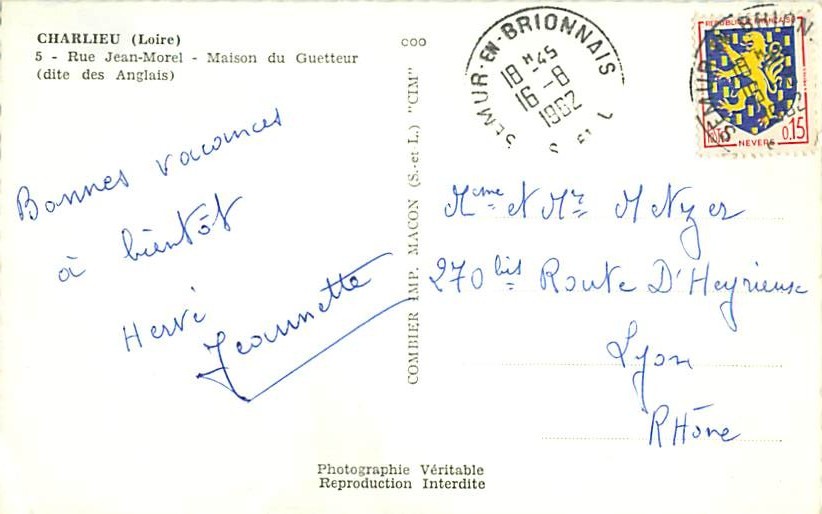 CHARLIEU (Loire)
5 - Rue Jean-Morel - Maison du Guetteur
(dite des Anglais)
COO
SEMUR-EN-BRIONNAIS
18 H 45
16-8
1962
S ET L
REPUBLIQUE FRANÇAISE
POSTES
0,15
NEVERS
Bonnes vacances
à bientôt
Hervé
Jeannette
COMBIER IMP. MACON (S.-et-L.) "CIM"
Mme et Mr Metzer
270 bis Route D'Heyrieux
Lyon
Rhône
Photographie Véritable
Reproduction Interdite